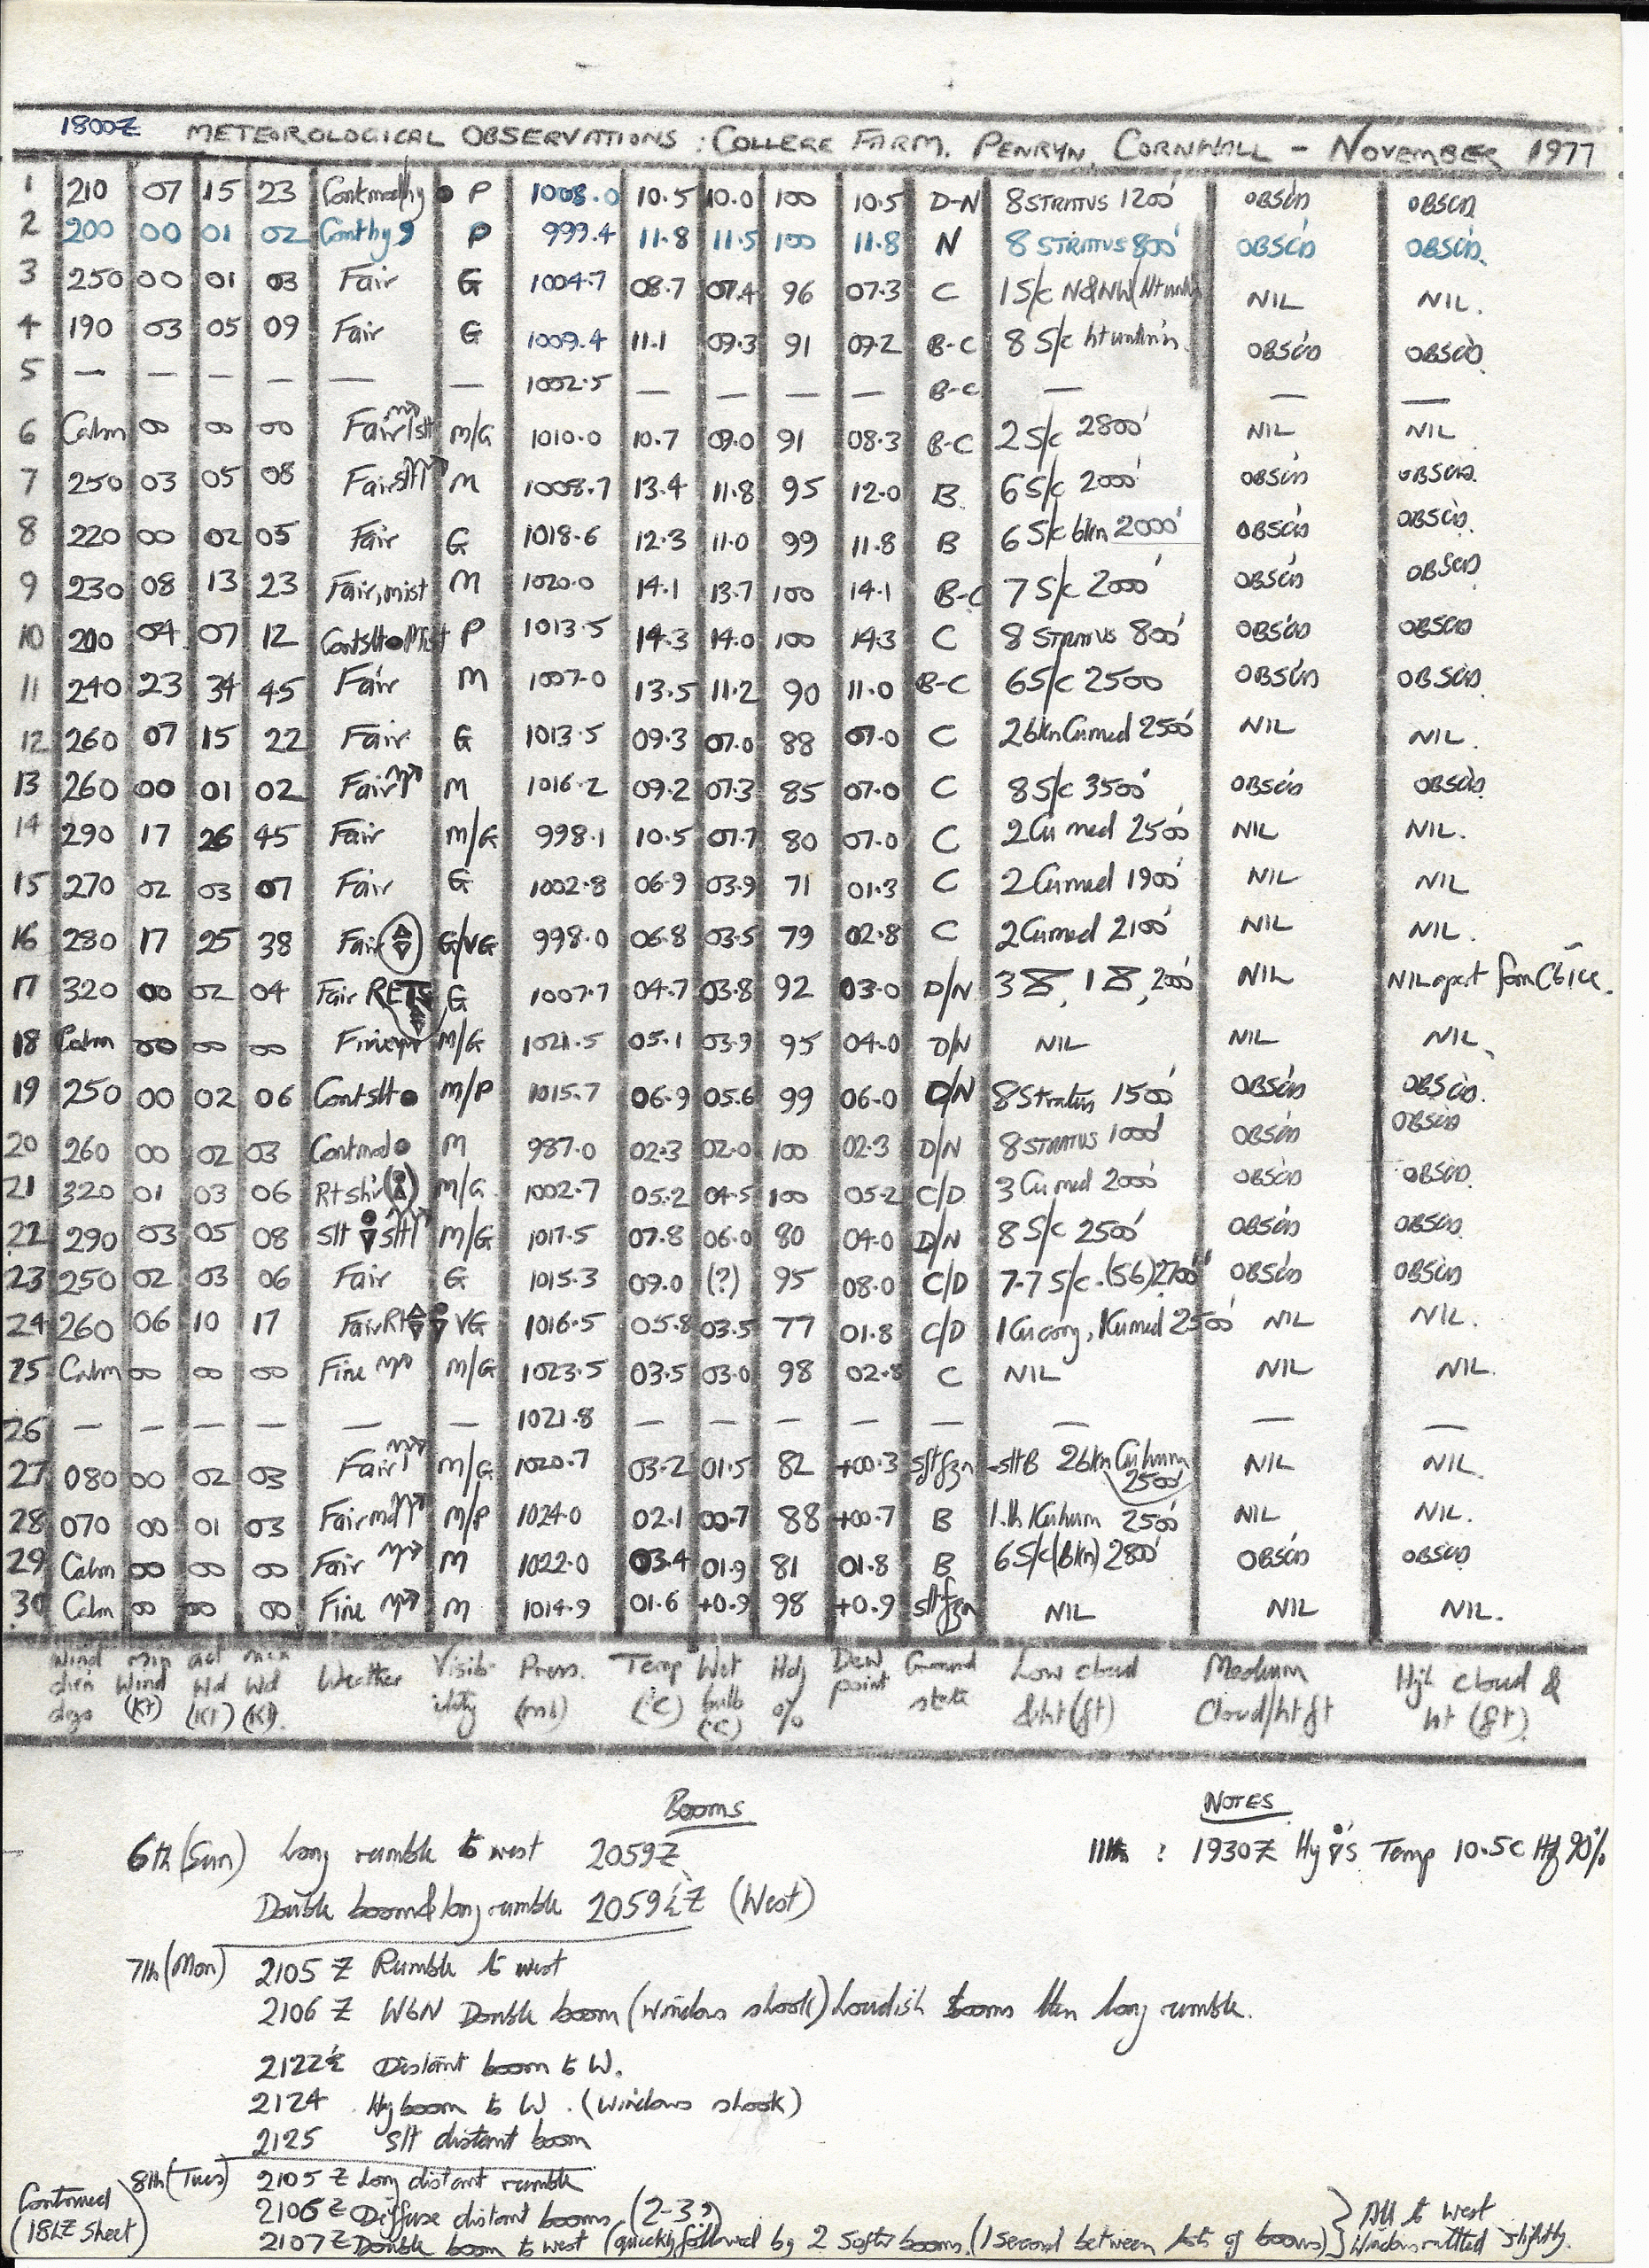 1800Z METEOROLOGICAL OBSERVATIONS : COLLEGE FARM, PENRYN, CORNWALL - NOVEMBER 1977
1 210 07 15 23 P 1008.0 10.5 10.0 100 10.5 D-N 8 STRATUS 1200' OBSCD OBSCD
2 200 00 01 02 Conthy P 999.4 11.8 11.5 100 11.8 N 8 STRATUS 800' OBSCD OBSCD.
3 250 00 01 03 Fair G 1004.7 08.7 07.4 96 07.3 C 1 S/c N&NW NIL NIL.
4 190 03 05 09 Fair G 1009.4 11.1 09.3 91 09.2 B-C 8 S/c ht OBSCD OBSCD.
5 — — — — — — 1002.5 — — — — B-C — — —
6 Calm 00 00 00 Fair/slt M/G 1010.0 10.7 09.0 91 08.3 B-C 2 S/c 2800' NIL NIL
7 250 03 05 08 Fair slt M 1008.7 13.4 11.8 95 12.0 B 6 S/c 2000' OBSCD OBSCD.
8 220 00 02 05 Fair G 1018.6 12.3 11.0 99 11.8 B 6 S/c bkn 2000' OBSCD OBSCD.
9 230 08 13 23 Fair, mist M 1020.0 14.1 13.7 100 14.1 B-C 7 S/c 2000' OBSCD OBSCD
10 200 04 07 12 Contslt Mist P 1013.5 14.3 14.0 100 14.3 C 8 STRATUS 800' OBSCD OBSCD
11 240 23 34 45 Fair M 1007.0 13.5 11.2 90 11.0 B-C 6 S/c 2500 OBSCD OBSCD.
12 260 07 15 22 Fair G 1013.5 09.3 07.0 88 07.0 C 2 bkn Cu med 2500' NIL NIL.
13 260 00 01 02 Fair M 1016.2 09.2 07.3 85 07.0 C 8 S/c 3500' OBSCD OBSCD.
14 290 17 26 45 Fair M/G 998.1 10.5 07.7 80 07.0 C 2 Cu med 2500' NIL NIL.
15 270 02 03 07 Fair G 1002.8 06.9 03.9 71 01.3 C 2 Cu med 1900' NIL NIL
16 280 17 25 38 Fair G/VG 998.0 06.8 03.5 79 02.8 C 2 Cu med 2100' NIL NIL.
17 320 00 02 04 Fair RETS G 1007.7 04.7 03.8 92 03.0 D/N 3 , 1 , 200' NIL NIL apart from Cb ice.
18 Calm 00 00 00 Fine M/G 1021.5 05.1 03.9 95 04.0 D/N NIL NIL NIL.
19 250 00 02 06 Contslt M/P 1015.7 06.9 05.6 99 06.0 D/N 8 Stratus 1500' OBSCD OBSCD.
20 260 00 02 03 Contmod M 987.0 02.3 02.0 100 02.3 D/N 8 STRATUS 1000' OBSCD OBSCD
21 320 01 03 06 Rtshr M/G. 1002.7 05.2 04.5 100 05.2 C/D 3 Cu med 2000' OBSCD OBSCD.
22 290 03 05 08 slt slt M/G 1017.5 07.8 06.0 80 04.0 D/N 8 S/c 2500' OBSCD OBSCD.
23 250 02 03 06 Fair G 1015.3 09.0 (?) 95 08.0 C/D 7.7 S/c.(S6) 2700' OBSCD OBSCD
24 260 06 10 17 Fair Rt VG 1016.5 05.8 03.5 77 01.8 C/D 1 Cu cong, 1 Cu med 2500' NIL NIL.
25 Calm 00 00 00 Fine M/G 1023.5 03.5 03.0 98 02.8 C NIL NIL NIL.
26 — — — — — — 1021.8 — — — — — — —
27 080 00 02 03 Fair M/G 1020.7 03.2 01.5 82 +00.3 slt fzn -slt B 2 bkn Cu hum 2500' NIL NIL.
28 070 00 01 03 Fair mod M/P 1024.0 02.1 00.7 88 +00.7 B Cu hum 2500' NIL NIL.
29 Calm 00 00 00 Fair M 1022.0 03.4 01.9 81 01.8 B 6 S/c (Bkn) 2800' OBSCD OBSCD
30 Calm 00 00 00 Fine M 1014.9 01.6 +0.9 98 +0.9 slt fzn NIL NIL NIL.
Wind dirn dgs min Wind (Kt) act Wd (Kt) max Wd (Kt). Weather Visibility Press. (mb) Temp (°C) Wet bulb (°C) Hdy % Dew point Ground state Low cloud & ht (ft) Medium Cloud/ht ft High cloud & ht (ft).
Booms
6th (Sun) Long rumble to west 2059Z
Double boom & long rumble 2059½Z (West)
7th (Mon) 2105 Z Rumble to west
2106 Z WbN Double boom (windows shook) Loudish booms then long rumble.
2122½ Distant boom to W.
2124 Hy boom to W. (windows shook)
2125 Slt distant boom
8th (Tues) 2105 Z Long distant rumble
2106 Z Diffuse distant booms (2-3?)
2107 Z Double boom to west (quickly followed by 2 softer booms. (1 second between lots of booms) } All to west Windows rattled slightly.
(Continued 18LZ Sheet)
NOTES
11th : 1930Z Hy 's Temp 10.5C Hy 90%